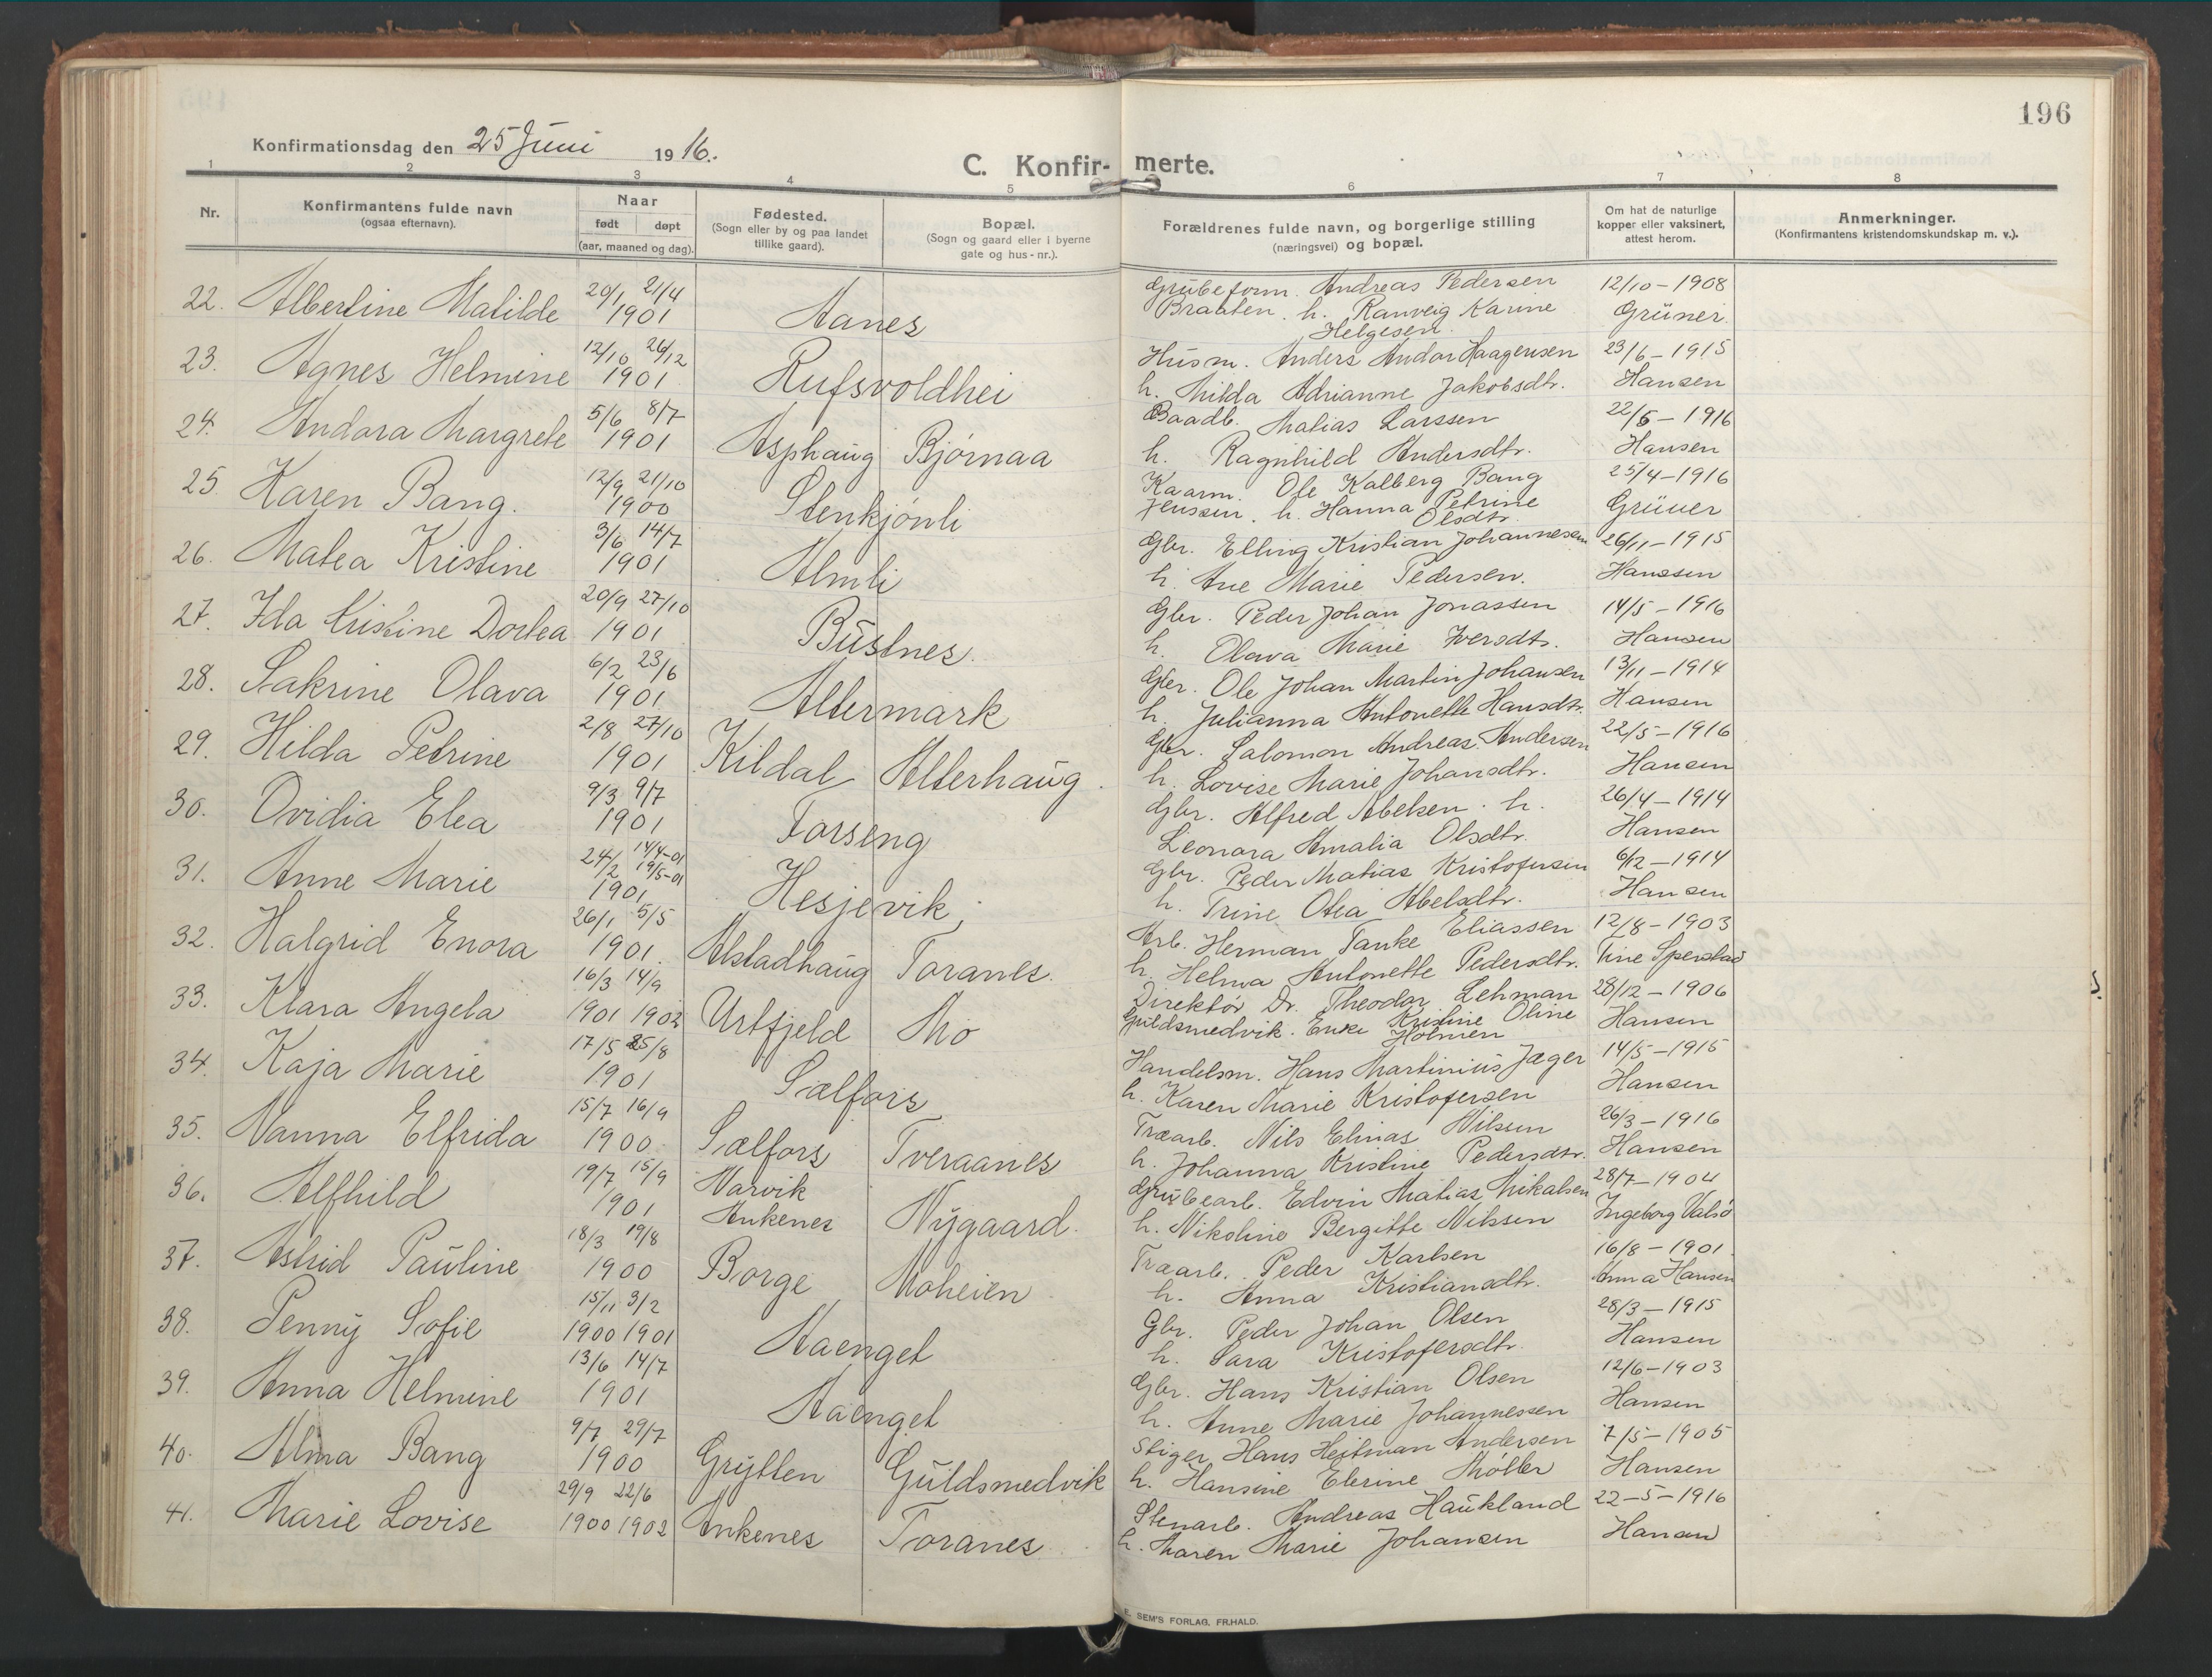 196
Konfirmationsdag den 25 Juni 1916.
C. Konfirmerte.
1 2 3 4 5 6 7 8
Nr.
Konfirmantens fulde navn
(ogsaa efternavn).
Naar
født døpt
(aar, maaned og dag).
Fødested.
(Sogn eller by og paa landet
tillike gaard).
Bopæl.
(Sogn og gaard eller i byerne
gate og hus-nr.).
Forældrenes fulde navn, og borgerlige stilling
(næringsvei) og bopæl.
Om hat de naturlige
kopper eller vaksinert,
attest herom.
Anmerkninger.
(Konfirmantens kristendomskundskap m. v.).
22. Albertine Matilde 20/1 21/4 1901 Aanes Grubeform. Andreas Pedersen 12/10-1908
Braaten. h. Ranveig Karine Helgesen. Grüner.
23. Agnes Helmine 12/10 26/12 1901 Rufsvoldhei Husm. Anders Andor Haagensen 23/6-1915
h. Hilda Adrianne Jakobsdtr. Hansen
24. Andora Margrete 5/6 8/7 1901 Asphaug Bjørnaa Baadb. Matias Larssen 22/5-1916
h. Ragnhild Andersdtr. Hansen
25. Karen Bang. 12/9 21/10 1900 Stenkjønli Kaarm. Ole Kalberg Bang 25/4-1916
Jenssen. h. Hanna Petrine Olsdtr. Grüner
26. Matea Kristine 3/6 14/7 1901 Almli Gbr. Elling Kristian Johannesen 26/11-1915
h. Ane Marie Pedersen. Hanssen
27. Ida Kristine Dortea 20/9 27/10 1901 Bustnes. Gbr. Peder Johan Jonassen 14/5-1916
h. Olava Marie Iversdtr. Hansen
28. Sakrine Olava 6/2 23/6 1901 Altermark Gbr. Ole Johan Martin Johansen 13/11-1914
h. Julianna Antonette Hansdtr. Hansen
29. Hilda Petrine 2/8 27/10 1901 Kildal Alterhaug. Gbr. Salomon Andreas Andersen 22/5-1916
h. Lovise Marie Johansdtr. Hansen
30. Ovidia Elea 9/3 9/7 1901 Forseng Gbr. Alfred Abelsen. h. 26/4-1914
Leonora Amalia Olsdtr. Hansen
31. Anne Marie 24/2 14/4-01 19/5-01 1901 Hesjevik Gbr. Peder Matias Kristofersen 6/12-1914
h. Trine Otea Abelsdtr. Hansen
32. Halgrid Enora 26/1 5/5 1901. Alstadhaug Toranes. Arb. Herman Tanke Eliassen 12/8-1903
h. Helma Antonette Pedersdtr. Tine Sperstad
33. Klara Angela 16/3 14/9 1901 1902 Urtfjeld Mo Direktør Dr. Theodor Lehman 28/12-1906
Guldsmedvik. Enke Kristine Oline Holmen Hansen
34. Kaja Marie 17/5 25/8 1901 Sælfors Handelsm. Hans Martinius Jæger 14/5-1915
h. Karen Marie Kristofersen Hansen
35. Nanna Elfrida 15/7 16/9 1900. Sælfors Tveraanes Træarb. Nils Elinas Nilsen 26/3-1916
h. Johanna Kristine Pedersdtr. Hansen
36. Alfhild 19/7 15/9 1901 Narvik Ankenes Nygaard. Grubearb. Edvin Matias Mikalsen 28/7-1904
h. Nikoline Bergitte Nilssen Ingeborg Valsö
37. Astrid Pauline 18/3 19/8 1900 Borge Moheien Træarb. Peder Karlsen 16/8-1901.
h. Anna Kristiansdtr. Anna Hansen
38. Penny Sofie 15/11 3/2 1900 1901 Aaenget Gbr. Peder Johan Olsen 28/3-1915
h. Sara Kristofersdtr. Hansen
39. Anna Helmine 13/6 14/7 1901 Aaenget Gbr. Hans Kristian Olsen 12/6-1903
h. Anne Marie Johannessen Hansen
40. Alma Bang 9/7 29/7 1900 Grytten Guldsmedvik Stiger Hans Heitman Andersen 7/5-1905
h. Hansine Elerine Møller Hansen
41. Marie Lovise 29/9 22/6 1900 1902 Ankenes Toranes Stenarb. Andreas Haukland 22-5-1916
h. Maren Marie Johansen Hansen
E. SEM'S FORLAG. FR.HALD.